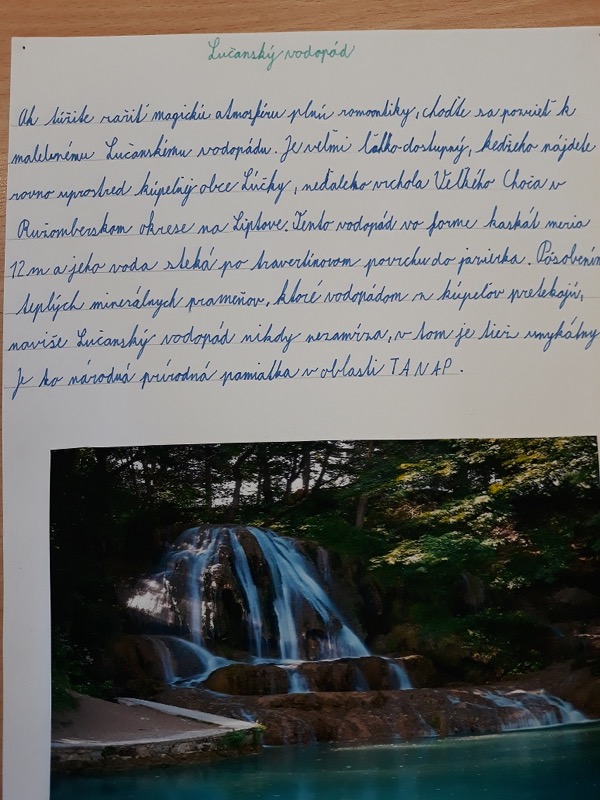 Lučanský vodopád
Ak túžite zažiť magickú atmosféru plnú romantiky, choďte sa pozrieť k
malebnému Lučanskému vodopádu. Je veľmi ľahko dostupný, keďže ho nájdete
rovno uprostred kúpeľnej obce Lúčky, neďaleko vrchola Veľkého Choča v
Ružomberskom okrese na Liptove. Tento vodopád vo forme kaskád meria
12 m a jeho voda steká po travertínovom povrchu do jazierka. Pôsobením
teplých minerálnych prameňov, ktoré vodopádom z kúpeľov pretekajú,
navyše Lučanský vodopád nikdy nezamŕza, v tom je tiež unikátny.
Je to národná prírodná pamiatka v oblasti TANAP.